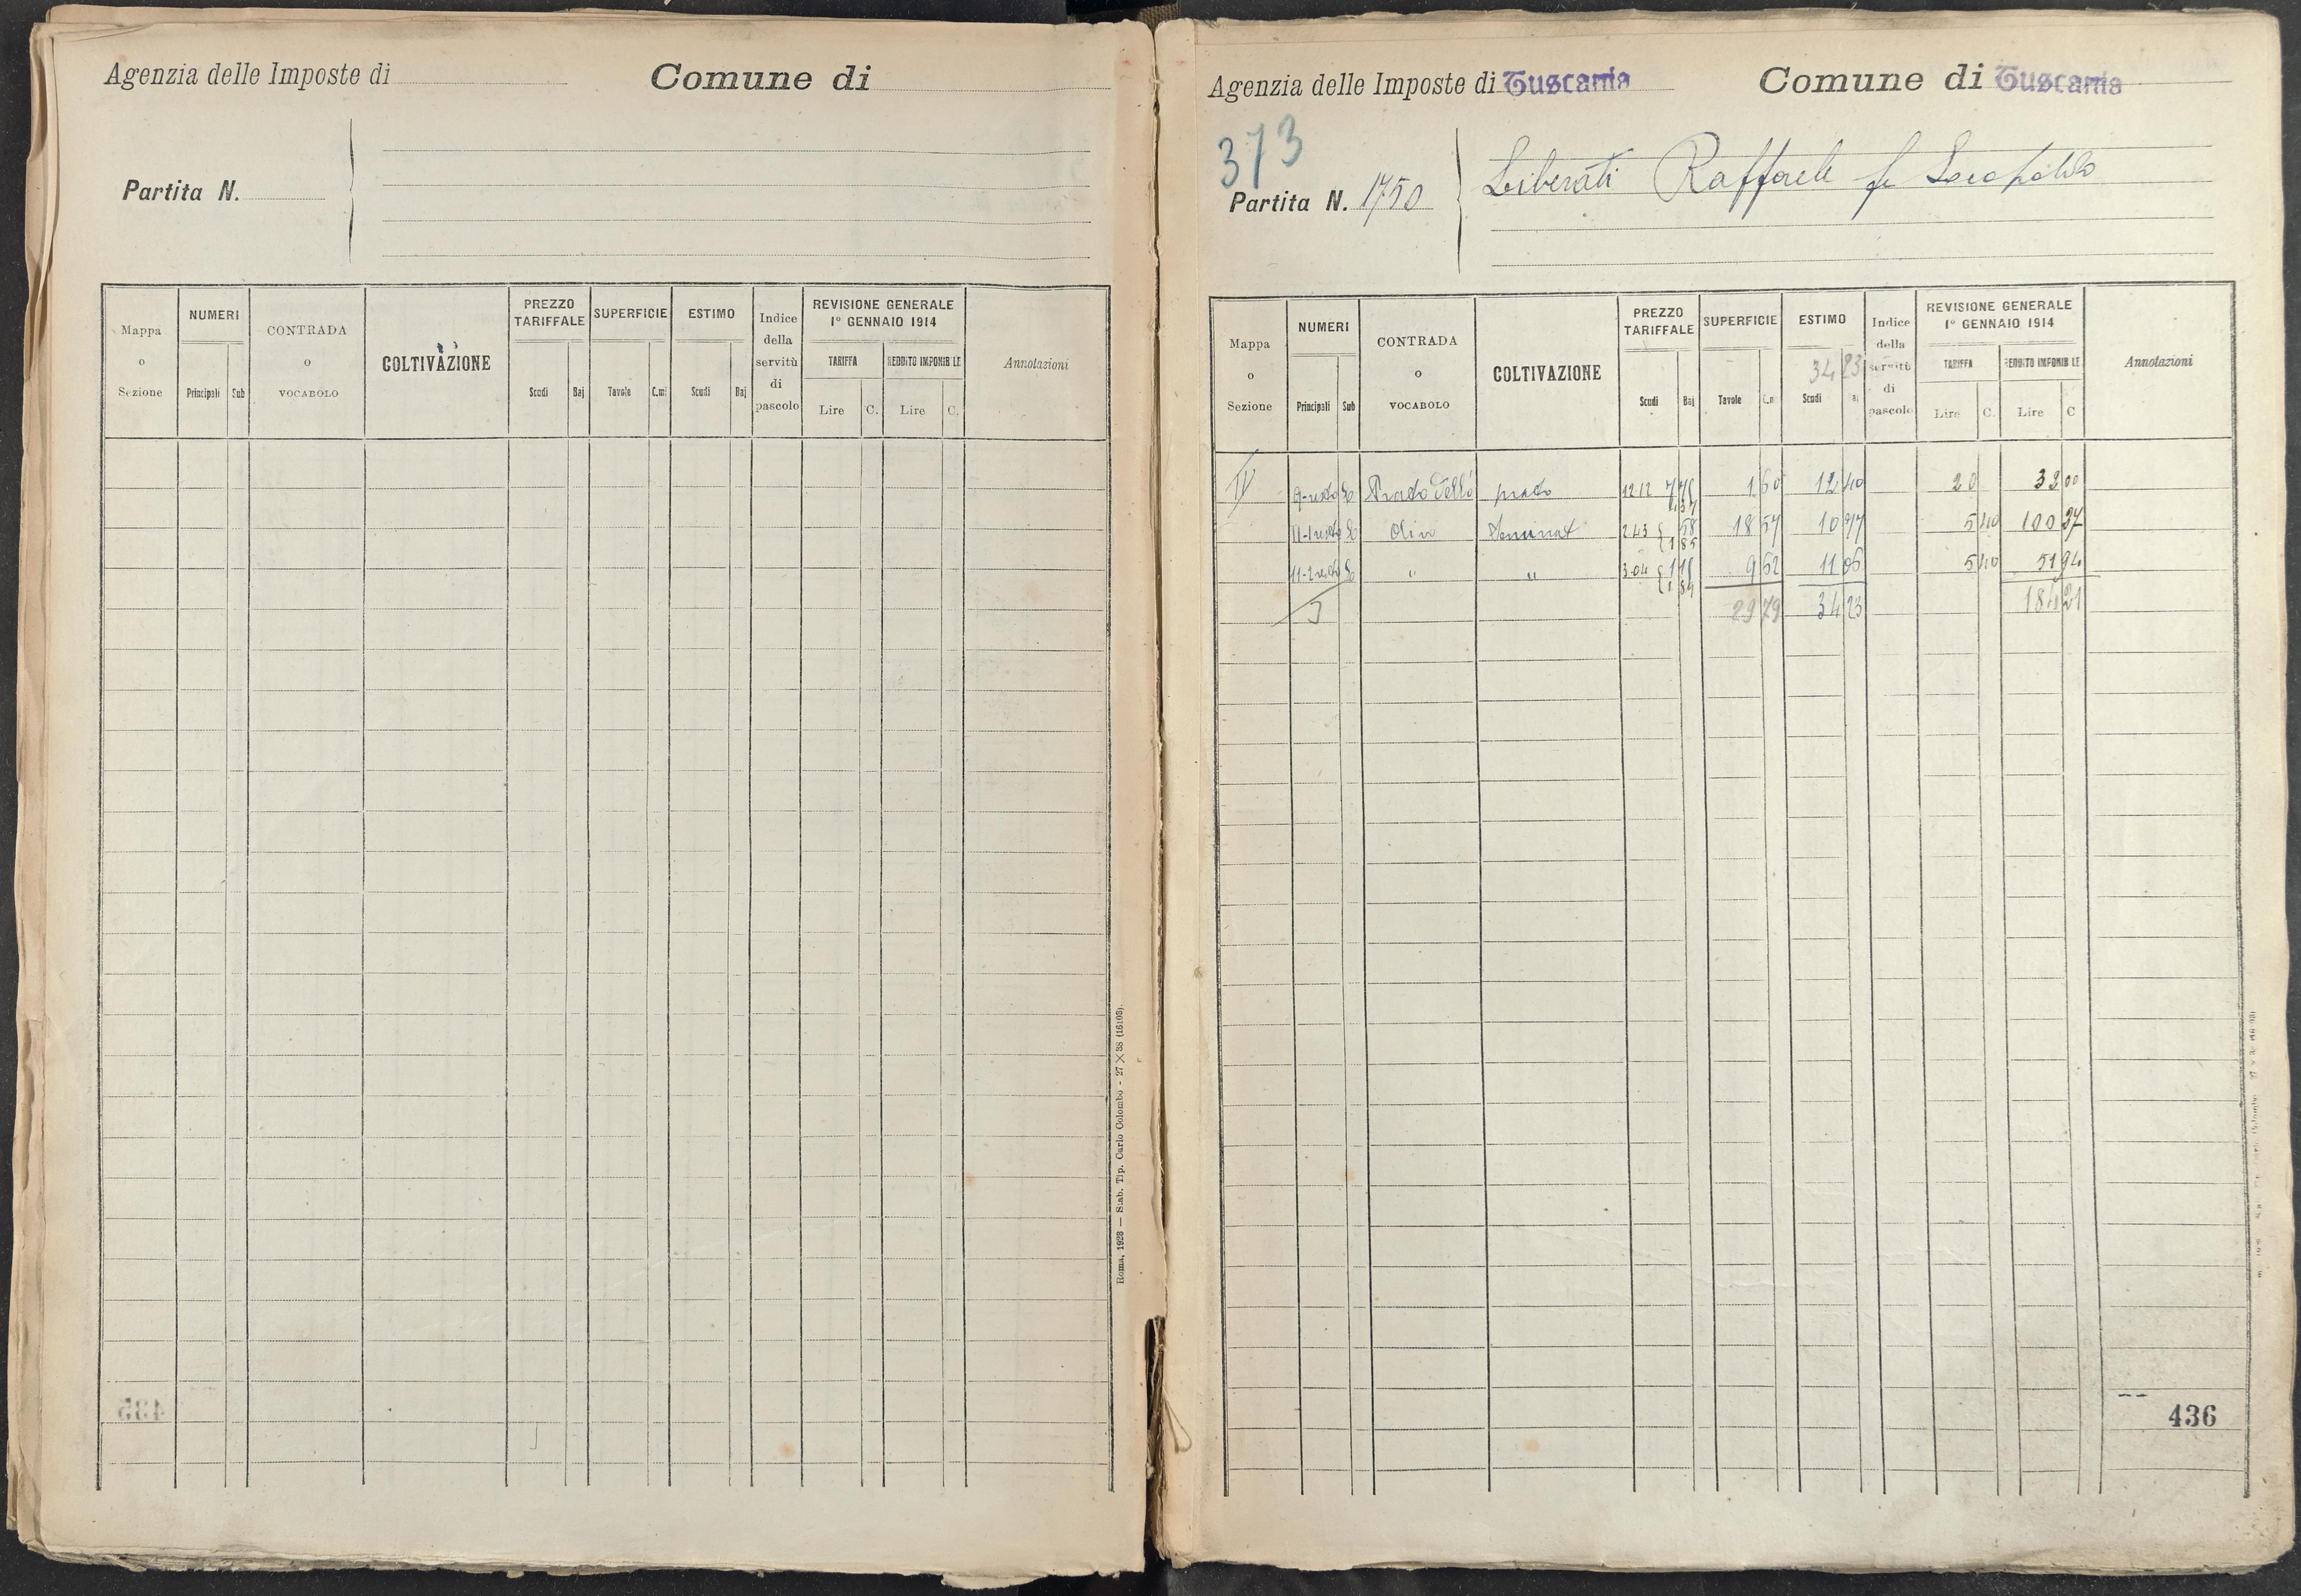 Agenzia delle Imposte di
Comune di
Partita N.
Mappa o Sezione
NUMERI
Principali
Sub
CONTRADA o VOCABOLO
COLTIVAZIONE
PREZZO TARIFFALE
Scudi
Baj
SUPERFICIE
Tavole
C.mi
ESTIMO
Scudi
Baj
Indice della servitù di pascolo
REVISIONE GENERALE
1° GENNAIO 1914
TARIFFA
REDDITO IMPONIBILE
Lire
C.
Lire
C.
Annotazioni
435
Roma, 1923 — Stab. Tip. Carlo Colombo - 27 X 38 (16103).
Agenzia delle Imposte di Tuscania
Comune di Tuscania
373
Partita N. 1750
Liberati Raffaele fu Leopoldo
Mappa o Sezione
NUMERI
Principali
Sub
CONTRADA o VOCABOLO
COLTIVAZIONE
PREZZO TARIFFALE
Scudi
Baj
SUPERFICIE
Tavole
ESTIMO
34 23
Scudi
Indice della servitù di pascolo
REVISIONE GENERALE
1° GENNAIO 1914
TARIFFA
REDDITO IMPONIBILE
Lire
C.
Lire
C
Annotazioni
IV 9-resto prato 12 12 1 60 12 40 20 32 00
11-1 resto Seminat 2.43 58 1 85 18 57 10 77 5 40 100 27
11-2 resto " " 3.04 9 62 11 06 5 40 51 94
3 29 79 34 23 184 21
436